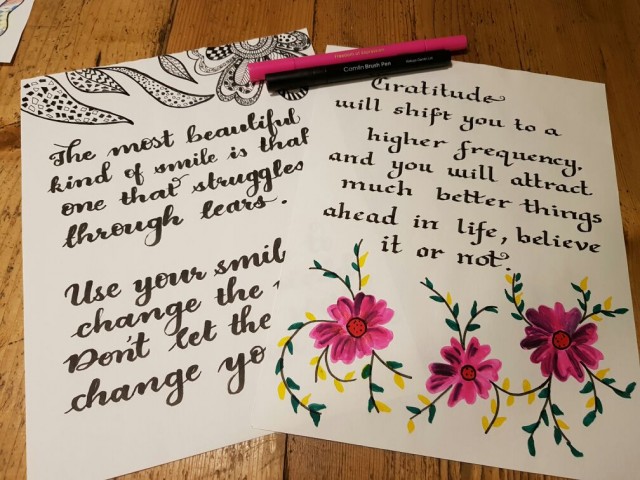 The most beautiful
kind of smile is that
one that struggles
through tears.
Use your smil
change the
Don't let the
change yo
Camlin Brush Pen
Gratitude
will shift you to a
higher frequency.
and you will attract
much better things
ahead in life, believe
it or not.